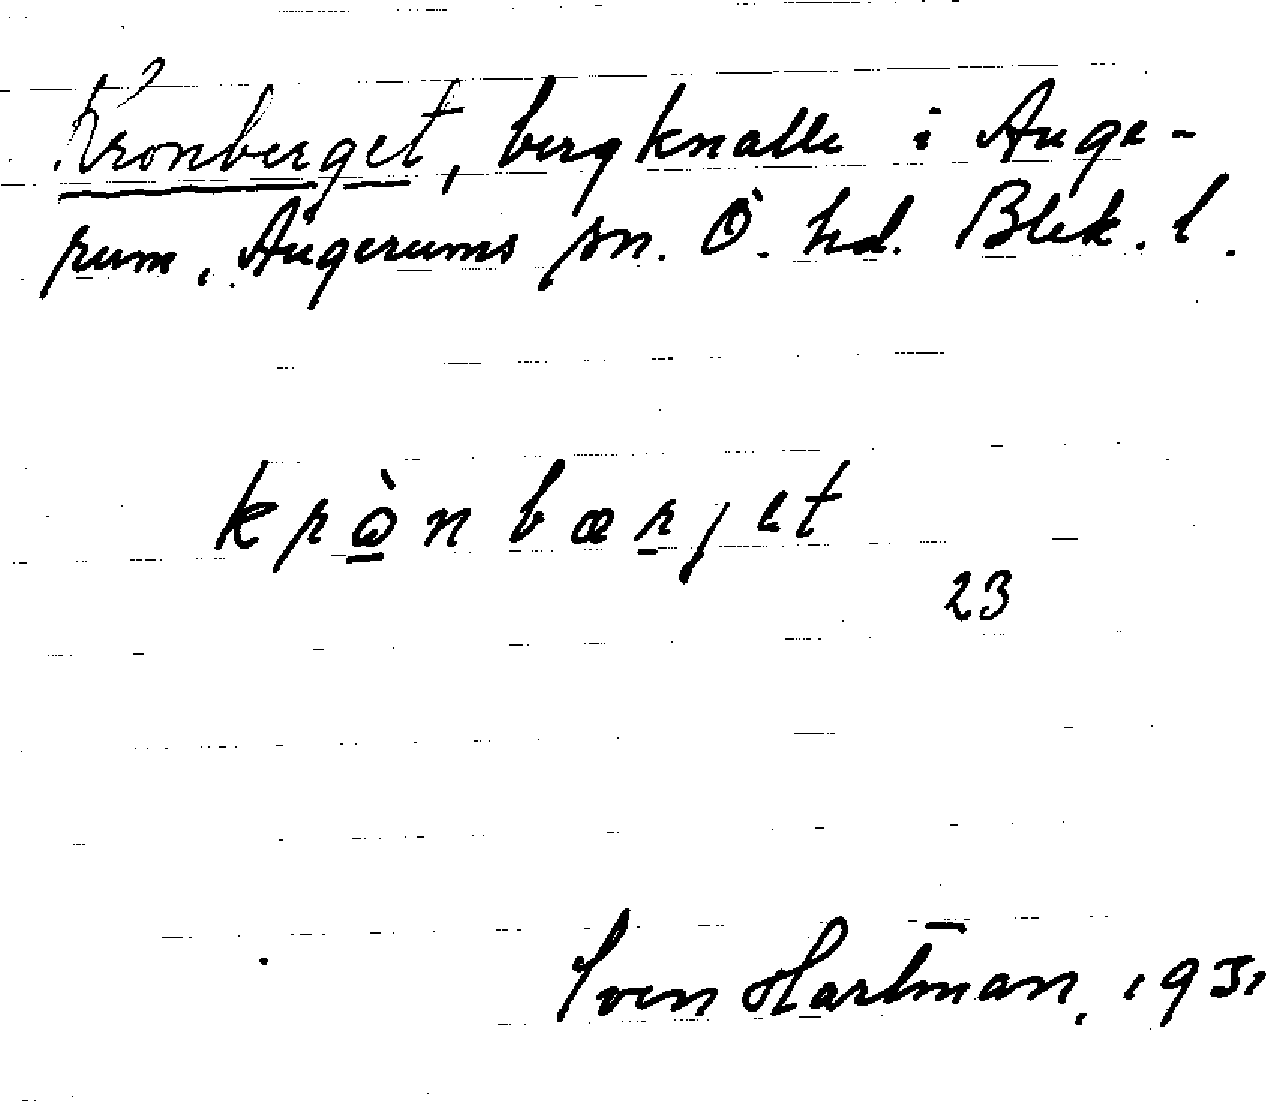 Kronberget, bergknalle i Auge-
rum, Augerums sn. Ö. hd. Blek. l.
krὼnbærjet
23
Sven Hartman, 1931